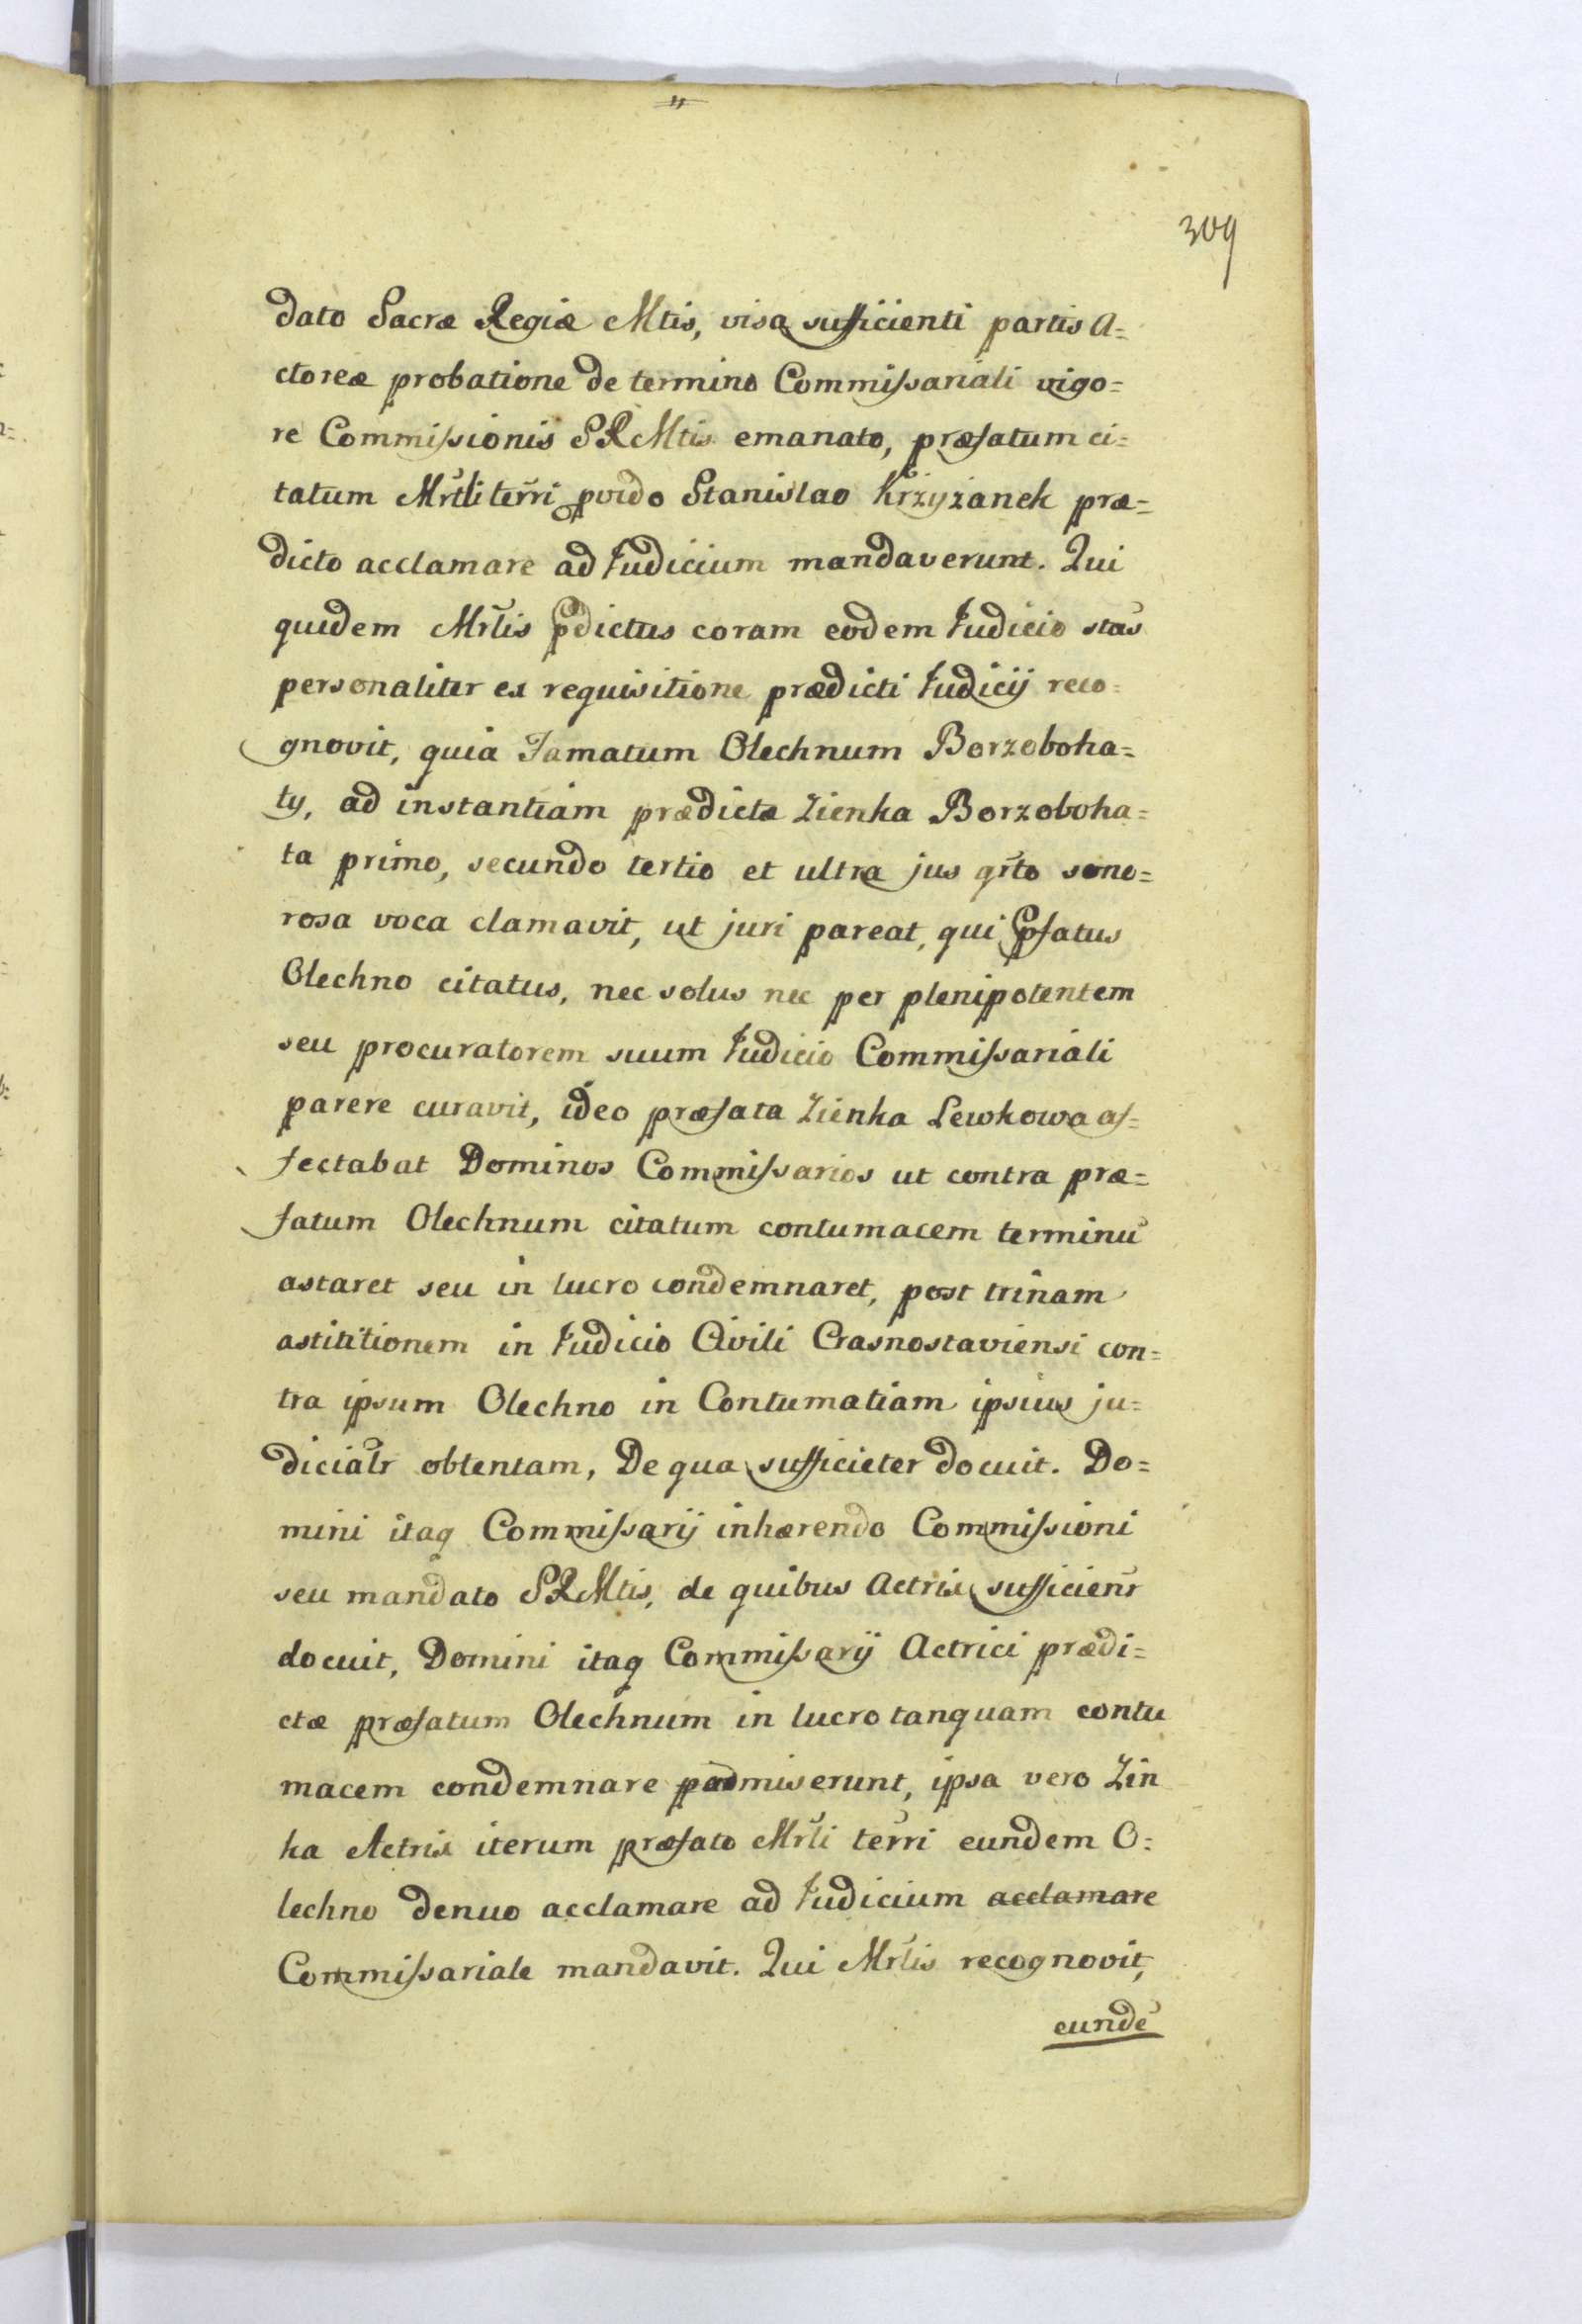 309
dato Sacræ Regiæ Mtis, visa sufficienti partis A=
ctoreæ probatione de termino Commissariali vigo=
re Commissionis SRMtis emanato, præfatum ci=
tatum Mrtli terri pvido Stanislao Krzyżanek præ=
dicto acclamare ad Judicium mandaverunt. Qui
quidem Mrlis pdictus coram eodem Judicio stas
personaliter ex requisitione prædicti Judicij reco=
gnovit, quia Famatum Olechnum Borzoboha=
ty, ad instantiam prædicta Zienka Borzoboha=
ta primo, secundo tertio et ultra jus qrto sono=
rosa voca clamavit, ut juri pareat, qui pfatus
Olechno citatus, nec solus nec per plenipotentem
seu procuratorem suum Judicio Commissariali
parere curavit, ideo præfata Zienka Lewkowa af=
fectabat Dominos Commissarios ut contra præ=
fatum Olechnum citatum contumacem terminũ
astaret seu in lucro condemnaret, post trinam
astititionem in Judicio Civili Crasnostaviensi con=
tra ipsum Olechno in Contumatiam ipsius ju=
dicialr obtentam, De qua sufficieter docuit. Do=
mini itaq Commissarij inhærendo Commissioni
seu mandato SRMtis, de quibus Actrix sufficienr
docuit, Domini itaq Commissarij Actrici prædi=
ctæ præfatum Olechnum in lucro tanquam contu
macem condemnare padmiserunt, ipsa vero Zin
ka Actrix iterum præfato Mrli terri eundem O=
lechno denuo acclamare ad Judicium acclamare
Commissariale mandavit. Qui Mrlis recognovit,
eundẽ